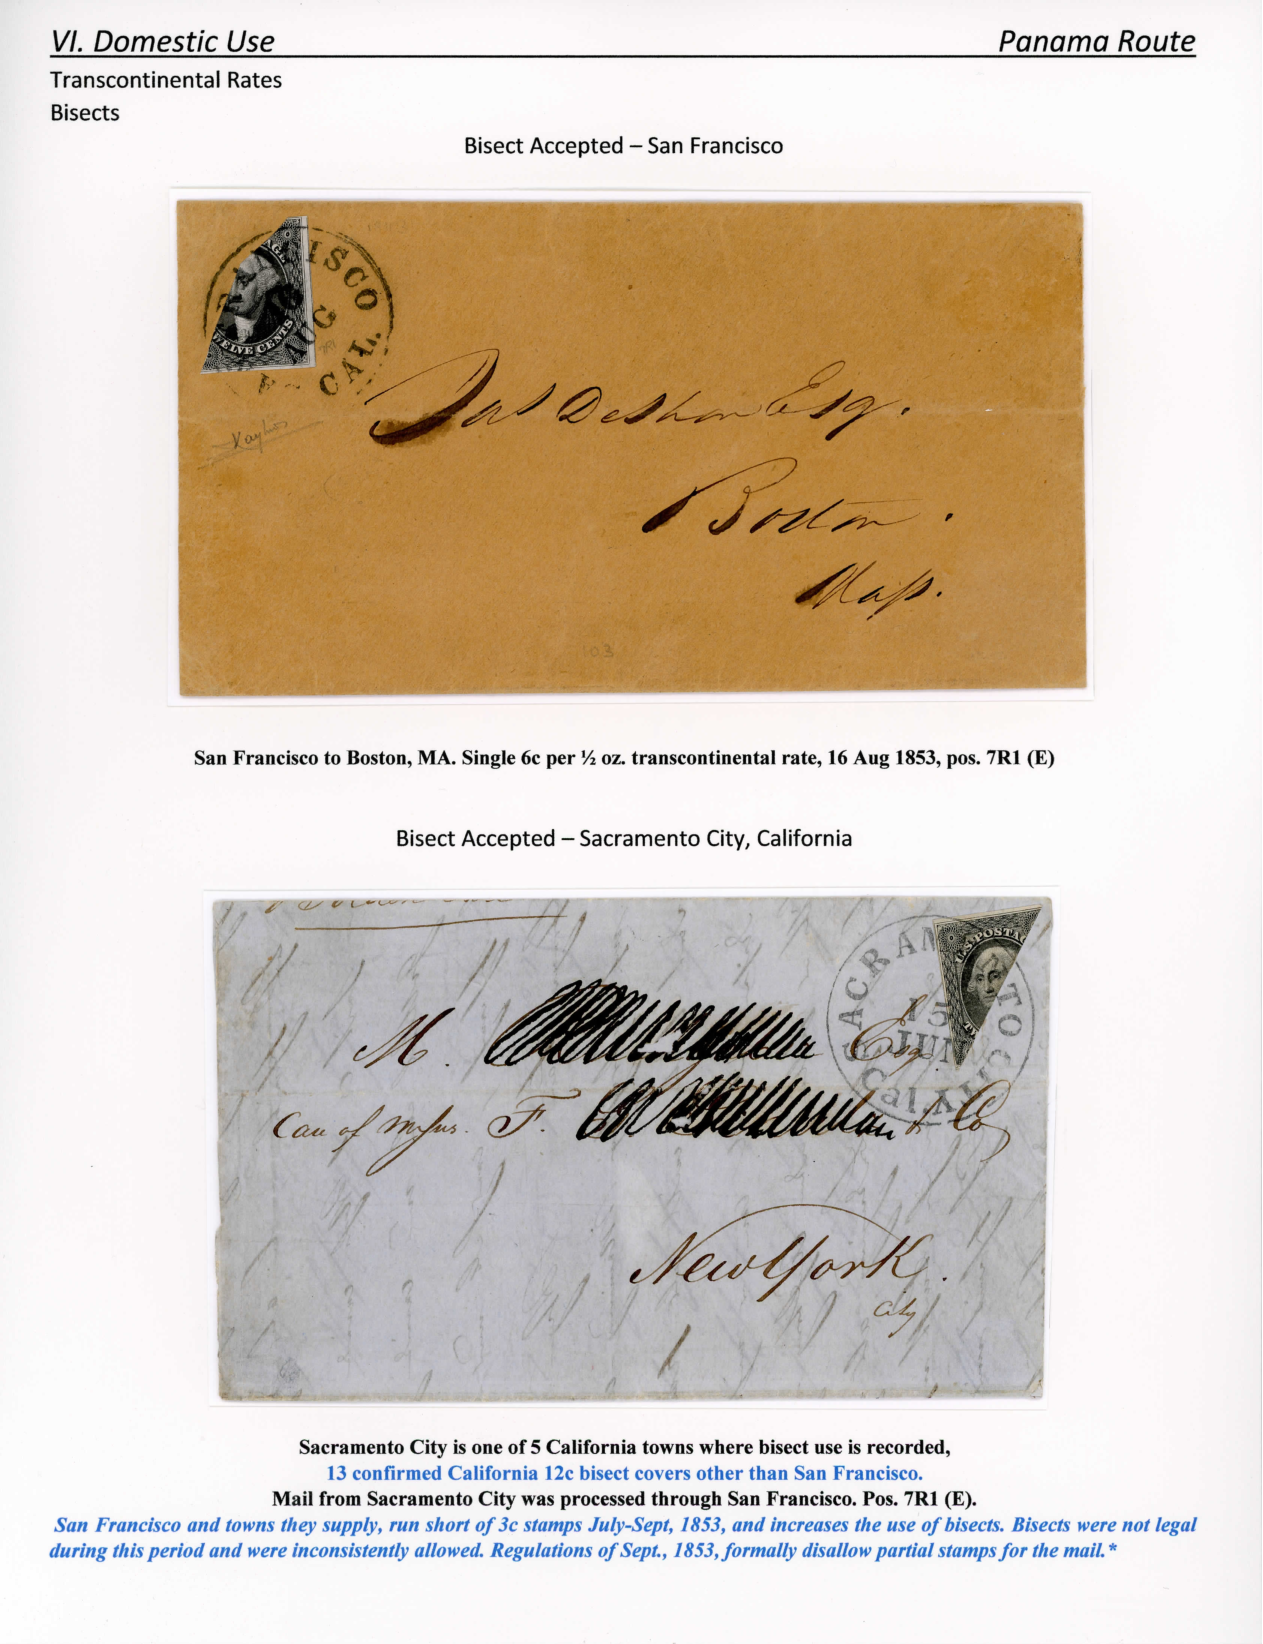 VI. Domestic Use
Panama Route
Transcontinental Rates
Bisects
Bisect Accepted – San Francisco
FRANCISCO
AUG
CAL.
TWELVE CENTS
Jas Deshon Esq.
Boston.
Mass.
San Francisco to Boston, MA. Single 6c per ½ oz. transcontinental rate, 16 Aug 1853, pos. 7R1 (E)
Bisect Accepted – Sacramento City, California
SACRAMENTO CITY Cal.
15
JUN
U.S. POSTAG
M. Esq
Care of Messrs. F. & Co
New York.
City
Sacramento City is one of 5 California towns where bisect use is recorded,
13 confirmed California 12c bisect covers other than San Francisco.
Mail from Sacramento City was processed through San Francisco. Pos. 7R1 (E).
San Francisco and towns they supply, run short of 3c stamps July-Sept, 1853, and increases the use of bisects. Bisects were not legal
during this period and were inconsistently allowed. Regulations of Sept., 1853, formally disallow partial stamps for the mail.*